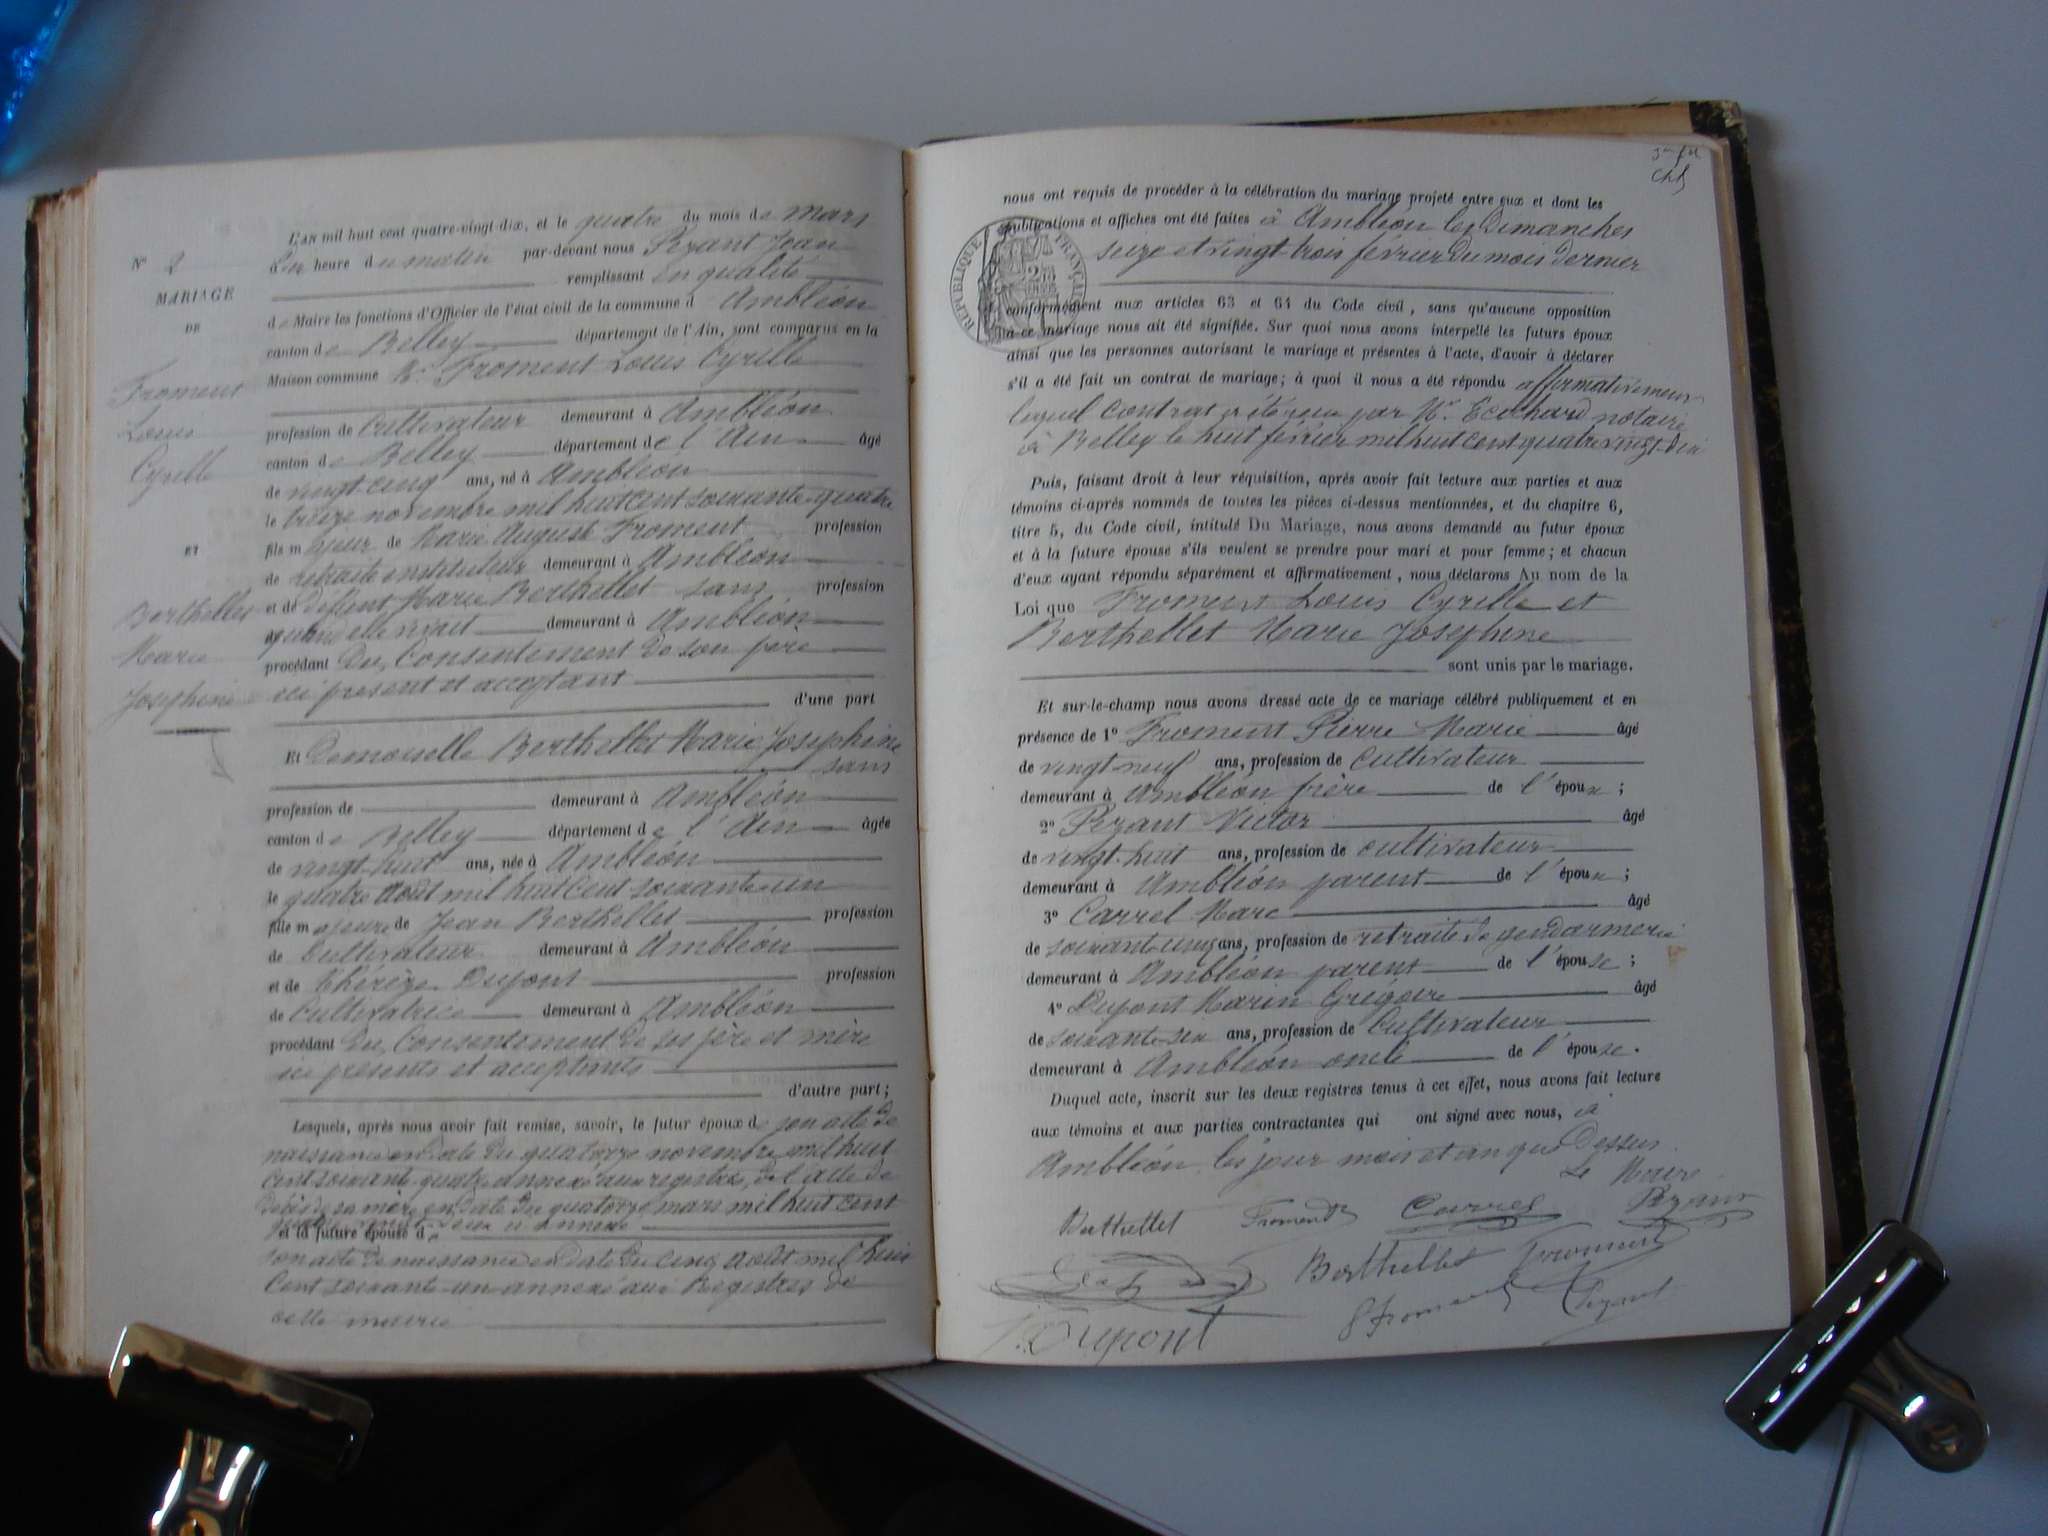 N° 2
MARIAGE
DE
Froment
Louis
Cyrille
ET
Berthellet
Marie
Joséphine
L'AN mil huit cent quatre-vingt-dix, et le quatre du mois de mars
à heure du matin par-devant nous Pezant Jean
remplissant en qualité
de Maire les fonctions d'Officier de l'état civil de la commune d Ambléon
canton de Belley département de l'Ain, sont comparus en la
Maison commune Mr Froment Louis Cyrille
profession de Cultivateur demeurant à Ambléon
canton de Belley département de l'Ain âgé
de vingt-cinq ans, né à Ambléon
le treize novembre mil huit cent soixante-quatre
fils majeur de Marie Auguste Froment profession
de retraité instituteur demeurant à Ambléon
et de Défunt Marie Berthellet sans profession
quand elle vivait demeurant à Ambléon
procédant Du Consentement de son père
ici présent et acceptant
d'une part
Et Demoiselle Berthellet Marie Joséphine
sans
profession de demeurant à Ambléon
canton de Belley département de l'Ain âgée
de vingt-huit ans, née à Ambléon
le quatre août mil huit Cent soixante-un
fille majeure de Jean Berthellet profession
de Cultivateur demeurant à Ambléon
et de Thérèze Dupont profession
de Cultivatrice demeurant à Ambléon
procédant Du Consentement de ses père et mère
ici présents et acceptants
d'autre part;
Lesquels, après nous avoir fait remise, savoir, le futur époux de son acte de
naissance en date du quatorze novembre mil huit
cent soixante-quatre annexé aux registres, de l'acte de
décès de sa mère en date du quatorze mars mil huit cent
annexé
et la future épouse de
son acte de naissance en date du cinq août mil huit
Cent soixante-un annexé aux Registres de
cette mairie
nous ont requis de procéder à la célébration du mariage projeté entre eux et dont les
publications et affiches ont été faites à Ambléon les Dimanches
seize et vingt-trois février du mois dernier
RÉPUBLIQUE FRANÇAISE
conformément aux articles 63 et 64 du Code civil, sans qu'aucune opposition
à ce mariage nous ait été signifiée. Sur quoi nous avons interpellé les futurs époux
ainsi que les personnes autorisant le mariage et présentes à l'acte, d'avoir à déclarer
s'il a été fait un contrat de mariage; à quoi il nous a été répondu affirmativement
lequel Contrat a été reçu par Me Ecochard notaire
à Belley le huit février mil huit cent quatre vingt-dix
Puis, faisant droit à leur réquisition, après avoir fait lecture aux parties et aux
témoins ci-après nommés de toutes les pièces ci-dessus mentionnées, et du chapitre 6,
titre 5, du Code civil, intitulé Du Mariage, nous avons demandé au futur époux
et à la future épouse s'ils veulent se prendre pour mari et pour femme; et chacun
d'eux ayant répondu séparément et affirmativement, nous déclarons Au nom de la
Loi que Froment Louis Cyrille et
Berthellet Marie Joséphine
sont unis par le mariage.
Et sur-le-champ nous avons dressé acte de ce mariage célébré publiquement et en
présence de 1° Froment Pierre Marie âgé
de vingt-neuf ans, profession de Cultivateur
demeurant à Ambléon frère de l'époux;
2° Pezant Victor âgé
de vingt-huit ans, profession de cultivateur
demeurant à Ambléon parent de l'époux;
3° Carrel Marc âgé
de soixante-cinq ans, profession de retraité de gendarmerie
demeurant à Ambléon parent de l'épouse;
4° Dupont Marin Grégoire âgé
de soixante-six ans, profession de Cultivateur
demeurant à Ambléon oncle de l'épouse.
Duquel acte, inscrit sur les deux registres tenus à cet effet, nous avons fait lecture
aux témoins et aux parties contractantes qui ont signé avec nous, à
Ambléon, les jour mois et an que Dessus
Le Maire
Berthellet Froment Carrel Pezant
Berthellet Froment
Froment Pezant
Dupont